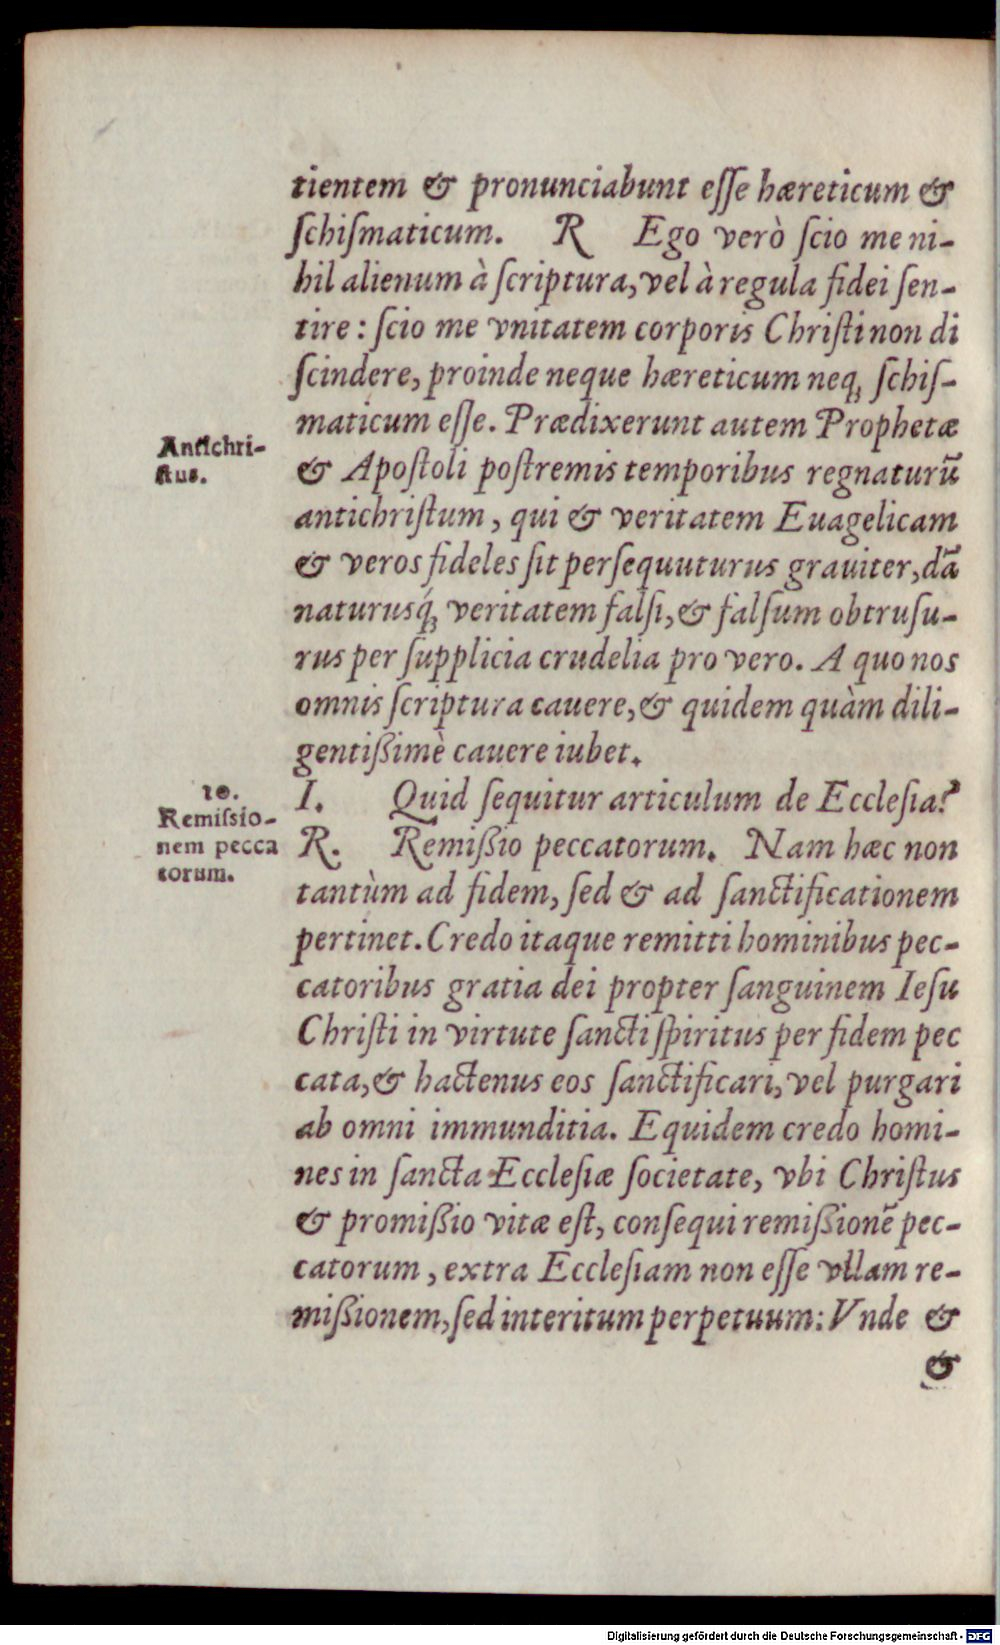 tientem & pronunciabunt eſſe hæreticum &
ſchiſmaticum. R Ego verò ſcio me ni-
hil alienum à ſcriptura, vel à regula fidei ſen-
tire: ſcio me vnitatem corporis Chriſti non di
ſcindere, proinde neque hæreticum neqꝫ ſchiſ-
maticum eſſe. Prædixerunt autem Prophetæ
Antichri-
ſtus.
& Apoſtoli poſtremis temporibus regnaturũ
antichriſtum, qui & veritatem Euagelicam
& veros fideles ſit perſequuturus grauiter, dã
naturusq́ꝫ veritatem falſi, & falſum obtruſu-
rus per ſupplicia crudelia pro vero. A quo nos
omnis ſcriptura cauere, & quidem quàm dili-
gentißimè cauere iubet.
10.
Remiſsio-
nem pecca
torum.
I. Quid ſequitur articulum de Eccleſia?
R. Remißio peccatorum. Nam hæc non
tantùm ad fidem, ſed & ad ſanctificationem
pertinet. Credo itaque remitti hominibus pec-
catoribus gratia dei propter ſanguinem Ieſu
Chriſti in virtute ſancti ſpiritus per fidem pec
cata, & hactenus eos ſanctificari, vel purgari
ab omni immunditia. Equidem credo homi-
nes in ſancta Eccleſiæ ſocietate, vbi Chriſtus
& promißio vitæ eſt, conſequi remißionẽ pec-
catorum, extra Eccleſiam non eſſe vllam re-
mißionem, ſed interitum perpetuum: Vnde &
&
Digitalisierung gefördert durch die Deutsche Forschungsgemeinschaft - DFG